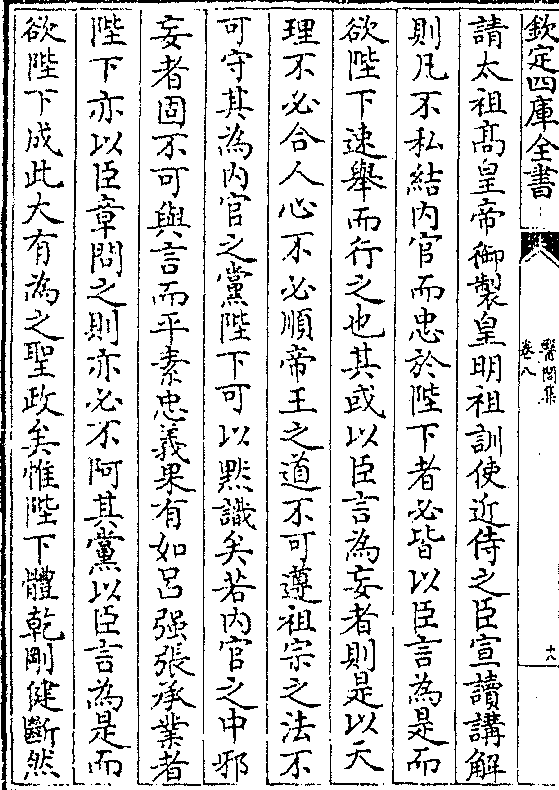 欽定四庫全書
醫閭集
卷八
十八
請太祖髙皇帝御製皇明祖訓使近侍之臣宣讀講解
則凡不私結内官而忠於陛下者必皆以臣言為是而
欲陛下速舉而行之也其或以臣言為妄者則是以天
理不必合人心不必順帝王之道不可遵祖宗之法不
可守其為内官之黨陛下可以黙識矣若内官之中邪
妄者固不可與言而平素忠義果有如呂强張承業者
陛下亦以臣章問之則亦必不阿其黨以臣言為是而
欲陛下成此大有為之聖政矣惟陛下體乾剛健斷然